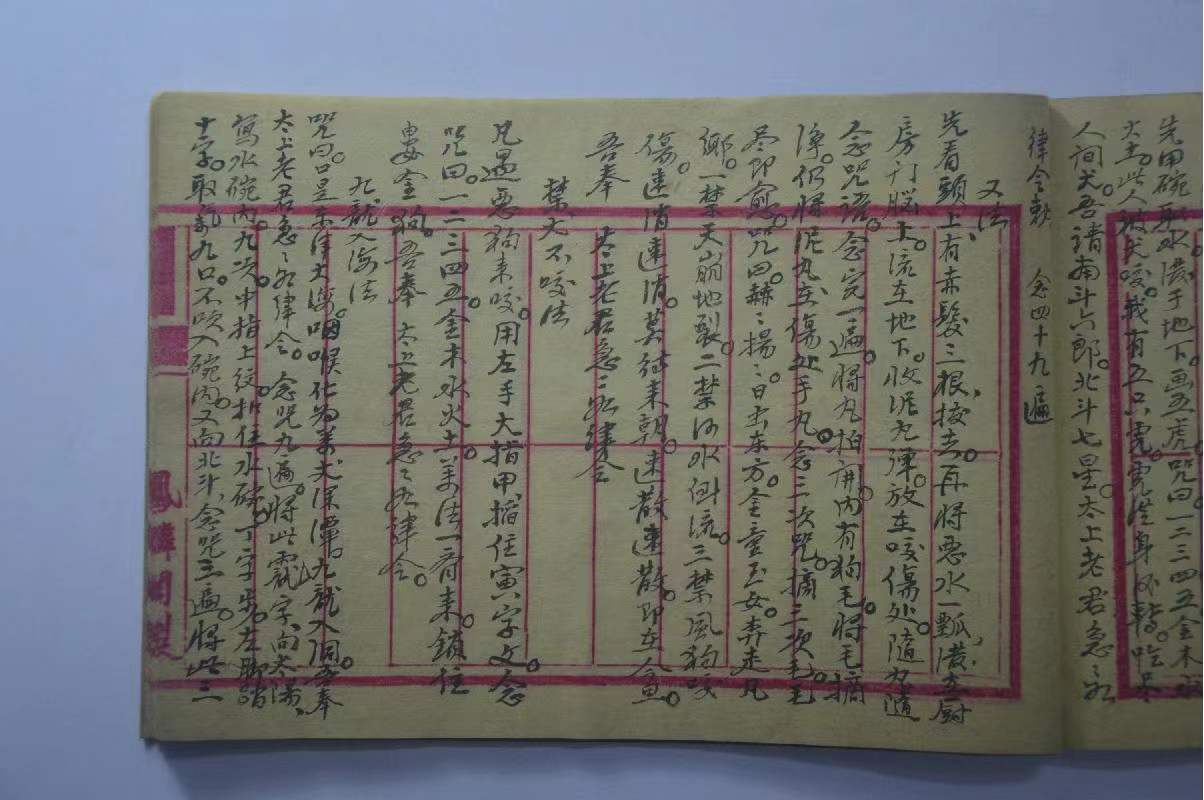 先用碗取水潑于地下画五虎咒曰一二三四五金木水
火土此人被犬咬我有五只虎虎
人间犬吾请南斗六郎北斗七星太上老君急之如
律令敕　念四十九遍
又法
先看頭上有赤髮三根拔去再将惡水一瓢潑在厨
房门脑上流在地下收泥丸弹放在咬傷处随丸随
念咒语念完一遍将丸拍開内有狗毛将毛摘
净仍将泥丸在傷处手丸念三次咒摘三次毛毛
尽即愈咒曰赫之揚之日出东方金童玉女奔走凡
鄉一禁天崩地裂二禁河水倒流三禁風狗咬
傷速消速消莫待来朝速散速散即在
吾奉　太上老君急之如律令
禁犬不咬法
凡遇惡狗来咬用左手大指甲掐住寅字文念
咒曰一二三四五金木水火土萬法一齊来鎖住
金狗吾奉太上老君急之如律令
九龍入海法
咒曰口是东洋大海咽喉化为萬丈深潭九龍入洞吾奉
太上老君急之如律令念咒九遍将此龍字向太陽
寫水碗内九次中指上纹扣住水碗丁字步左脚踏
十字取氣九口不吹入碗内又向北斗念咒三遍将此三